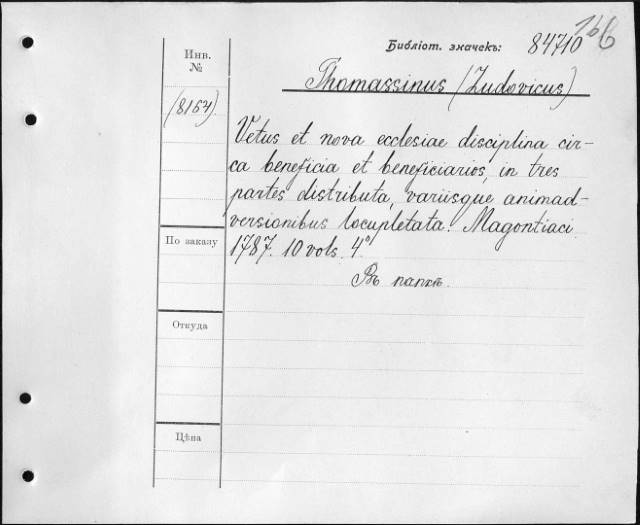 Библіот. значекъ: 84710
Инв.
№
Thomassinus (Ludovicus)
(8164)
Vetus et nova ecclesiae disciplina cir-
ca beneficia et beneficiarios, in tres
partes distributa, variisque animad-
versionibus locupletata. Magontiaci.
1787. 10 vols. 4°
Въ папкѣ.
По заказу
Откуда
Цѣна